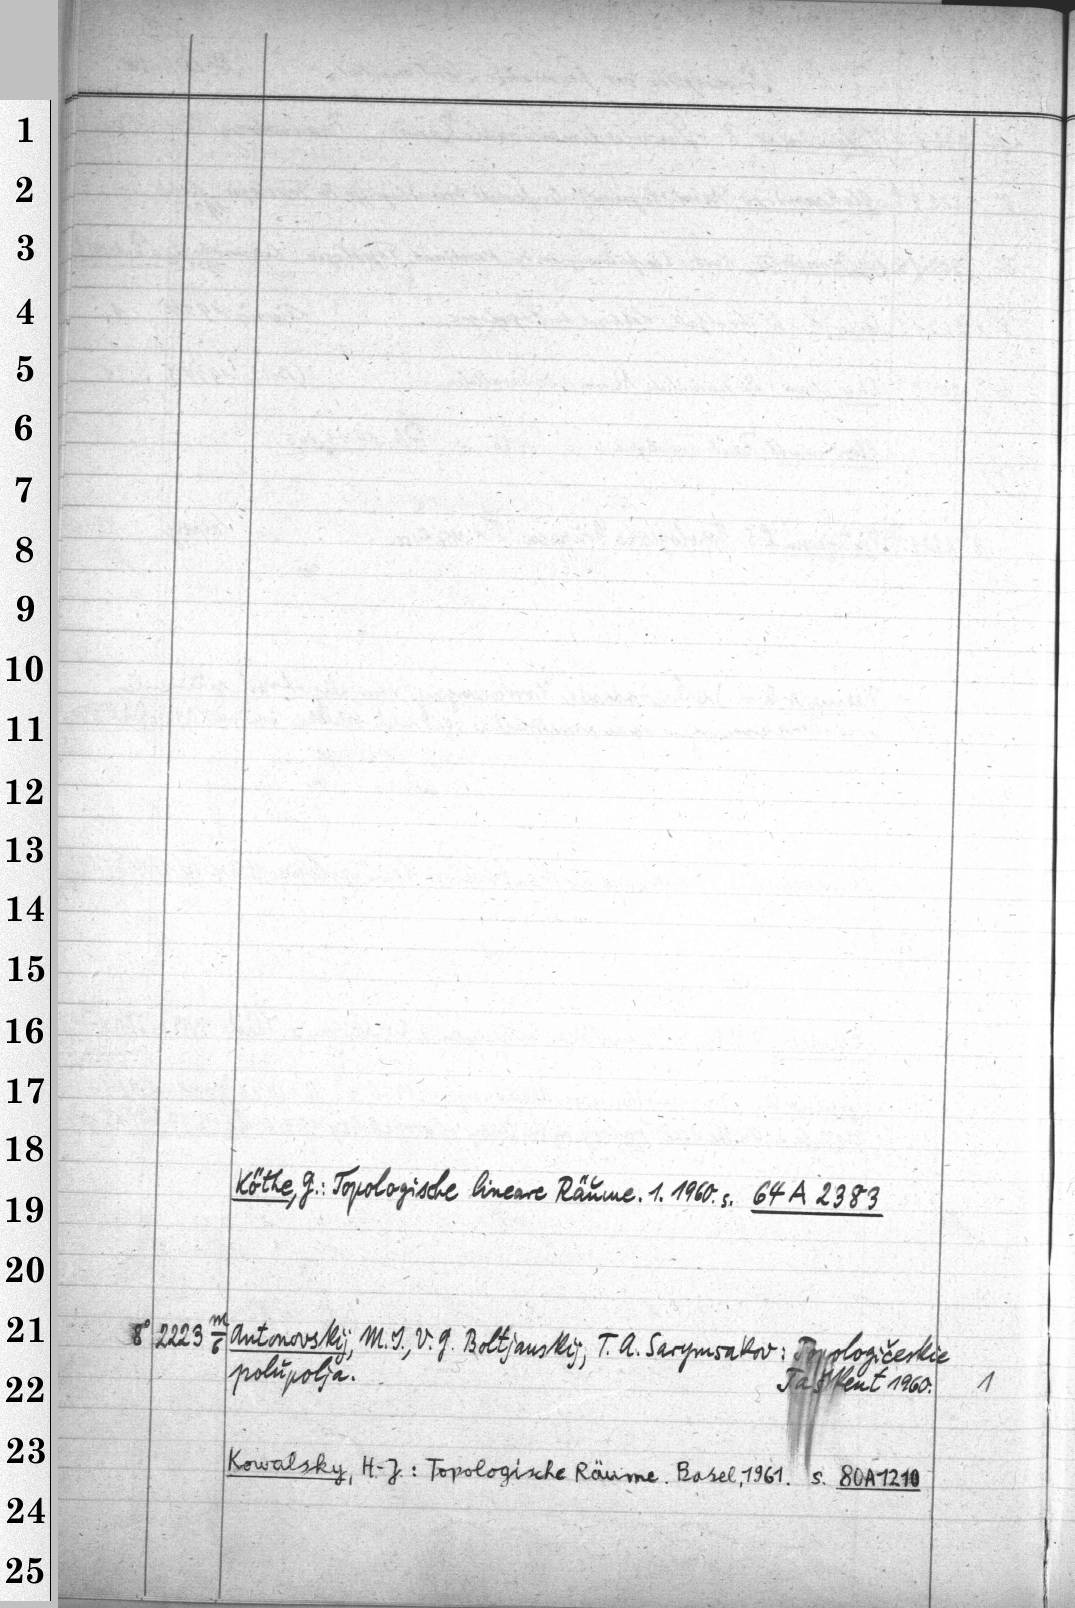 1
2
3
4
5
6
7
8
9
10
11
12
13
14
15
16
17
18
Köthe, G.: Topologische lineare Räume. 1. 1960. s. 64 A 2383
19
20
21
8° 2223 m/6 Antonovskij, M. J., V. G. Boltjanskij, T. A. Sarymsakov: Topologičeskie
polupolja. Taškent 1960. 1
22
23
Kowalsky, H.-J.: Topologische Räume. Basel, 1961. s. 80A1210
24
25